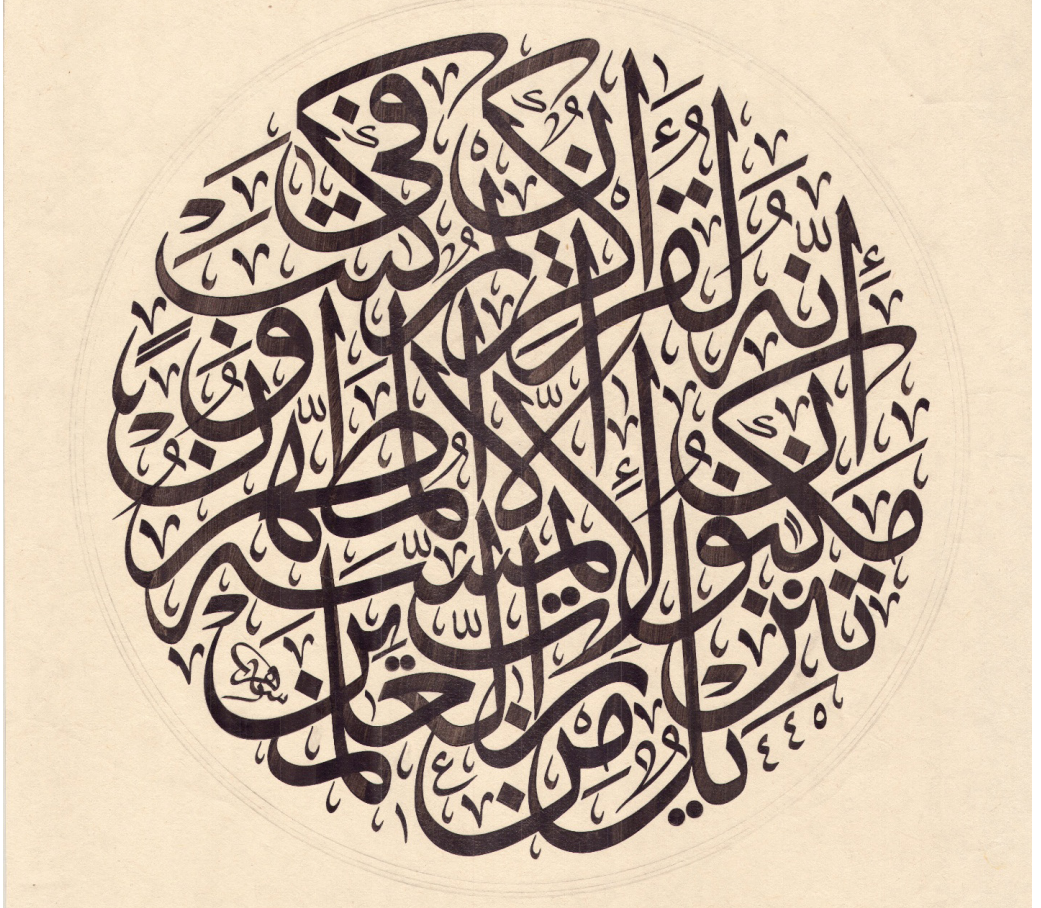 إِنَّهُ لَقُرْآنٌ كَرِيمٌ
فِي كِتَابٍ مَكْنُونٍ
لَا يَمَسُّهُ إِلَّا الْمُطَهَّرُونَ
تَنْزِيلٌ مِنْ رَبِّ الْعَالَمِينَ